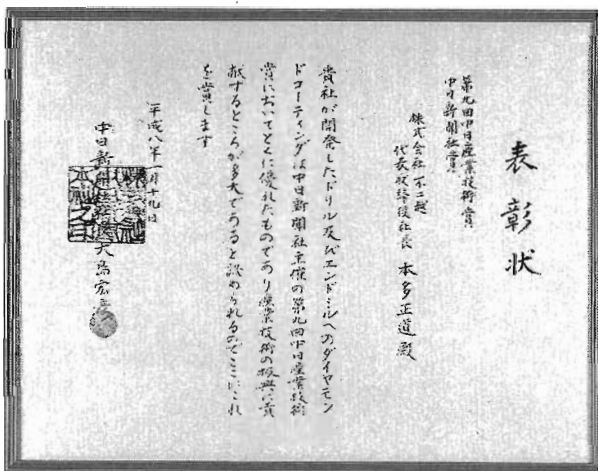 表彰状
第九回中日産業技術賞
中日新聞社賞
株式会社不二越
代表取締役社長 本多正道殿
貴社が開発したドリル及びエンドミルへのダイヤモン
ドコーティングは中日新聞社主催の第九回中日産業技術
賞においてとくに優れたものであり産業技術の振興に貢
献するところが多大であると認められるのでここにこれ
を賞します
平成八年一月十九日
中日新聞社社長 大島宏